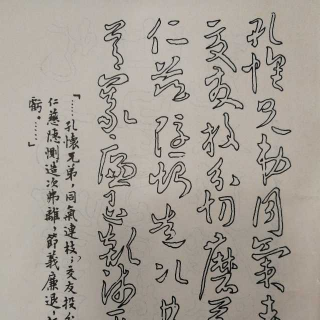 孔懷兄弟同氣連
交友投分切磨箴
仁慈隱惻造次弗
節義廉退顛沛匪
「……孔懷兄弟，同氣連枝；交友投分
仁慈隱惻造次弗離；節義廉退，
虧。……」